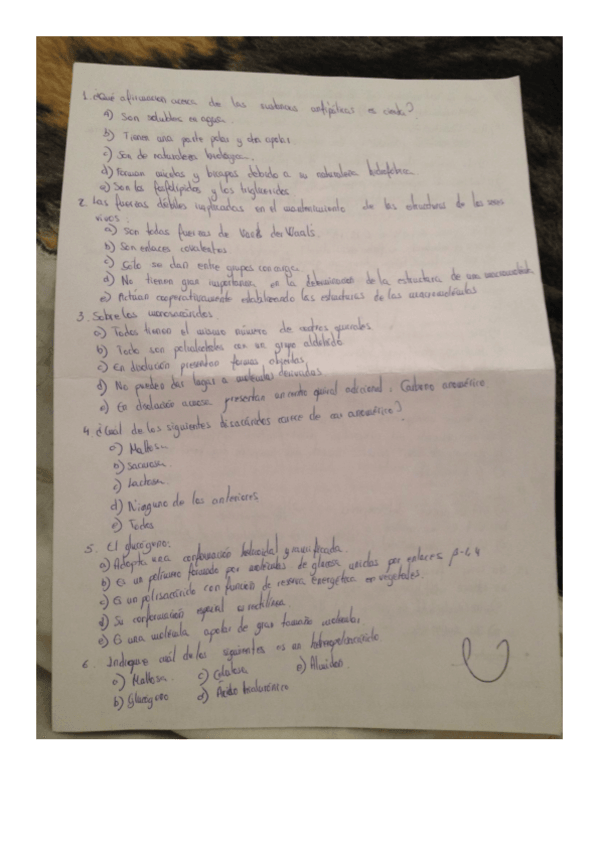 1. ¿Qué afirmacion acerca de las sustancias anfipáticas es cierta?
a) Son solubles en agua.
b) Tienen una parte polar y otra apolar
c) Son de naturaleza biológica.
d) Forman micelas y bicapas debido a su naturaleza hidrofóbica
e) Son los fosfolípidos y los trigliceridos
2. Las fuerzas débiles implicadas en el mantenimiento de las estructuras de los seres
vivos:
a) Son todas fuerzas de der Waals.
b) Son enlaces covalentes.
c) Sólo se dan entre grupos con carga.
d) No tienen gran importancia en la determinacion de la estructura de una macromolécula
e) Actúan cooperativamente estableciendo las estructuras de las macromoléculas
3. Sobre los monosacáridos.
a) Todos tienen el mismo número de centros quirales
b) Todo son polialcoholes con un grupo aldehído
c) En disolución presentan formas abiertas,
d) No pueden dar lugar a moléculas derivadas
e) En disolución acuosa presentan un centro quiral adicional, Carbono anomérico
4. ¿Cual de los siguientes disacáridos carece de anomérico?
a) Maltosa
b) Sacarosa
c) Lactosa.
d) Ninguno de los anteriores
e) Todos
5. El glucógeno:
a) Adopta una conformación helicoidal y ramificada.
b) Es un polímero formado por moléculas de glucosa unidas por enlaces β-1,4
c) Es un polisacárido con función de reserva energética en vegetales.
d) Su conformación espacial es rectilínea.
e) Es una molécula apolar de gran tamaño molecular,
6. Indique cuál de los siguientes es un heteropolisacárido.
a) Maltosa. c) Celulosa e) Almidón
b) Glucógeno d) Ácido hialurónico